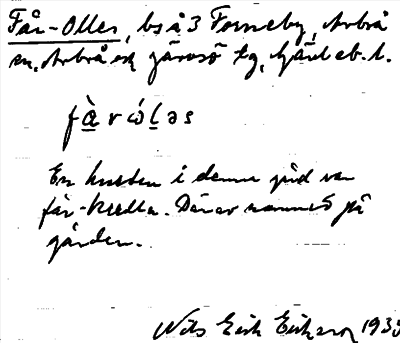 Får-Olles, bs å 3 Forneby, Arbrå
sn, Arbrå och Järvsö tg, Gävleb. l.
fà̱rωḻ́əs
En husbon i denna gård var
får-kredla. Därav namnet på
gården.
Nils Erik Eriksson 193